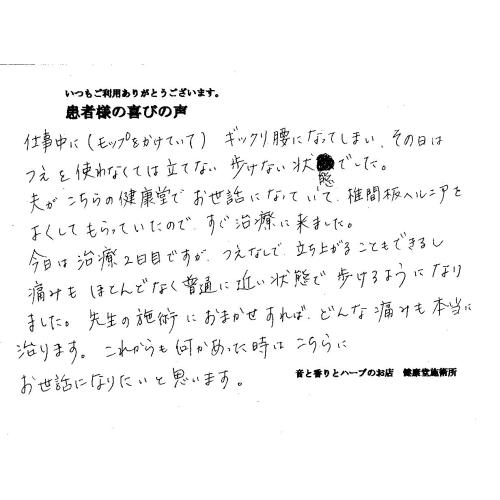 いつもご利用ありがとうございます。
患者様の喜びの声
仕事中に(モップをかけていて) ギックリ腰になってしまい、その日は
つえを使わなくては立てない 歩けない状態でした。
夫がこちらの健康堂でお世話になっていて、椎間板ヘルニアを
よくしてもらっていたので、すぐ治療に来ました。
今日は治療2日目ですが、つえなしで、立ち上がることもできるし
痛みもほとんどなく普通に近い状態で歩けるようになり
ました。先生の施術におまかせすれば、どんな痛みも本当に
治ります。これからも何かあった時はこちらに
お世話になりたいと思います。
音と香りとハーブのお店 健康堂施術所